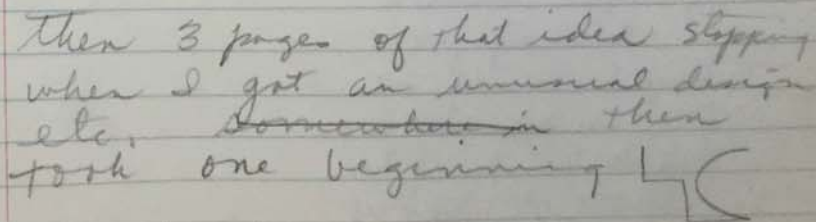 then 3 pages of that idea stopping
when I got an unusual design
etc. somewhere in then
took one beginning